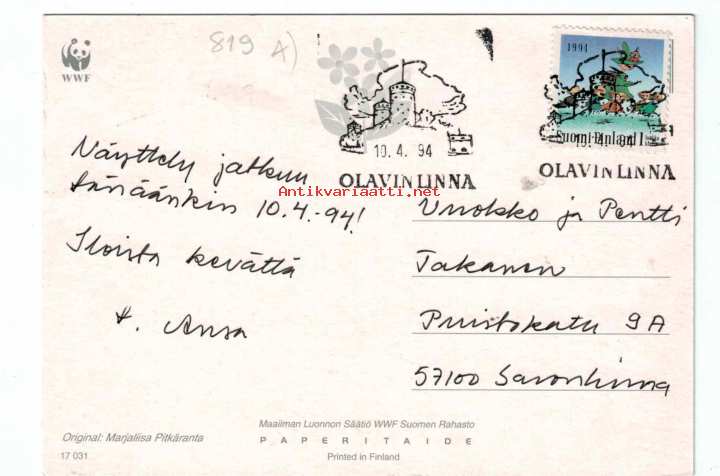 WWF
819 A)
1994
Suomi-Finland 1
10. 4. 94
OLAVINLINNA
10. 4. 94
OLAVINLINNA
Antikvariaatti.net
Näyttely jatkuu
tänäänkin 10.4.-94!
Iloista kevättä
t. Ansa
Vuokko ja Pentti
Takanen
Puistokatu 9A
57100 Savonlinna
Maailman Luonnon Säätiö WWF Suomen Rahasto
PAPERITAIDE
Printed in Finland
Original: Marjaliisa Pitkäranta
17 031